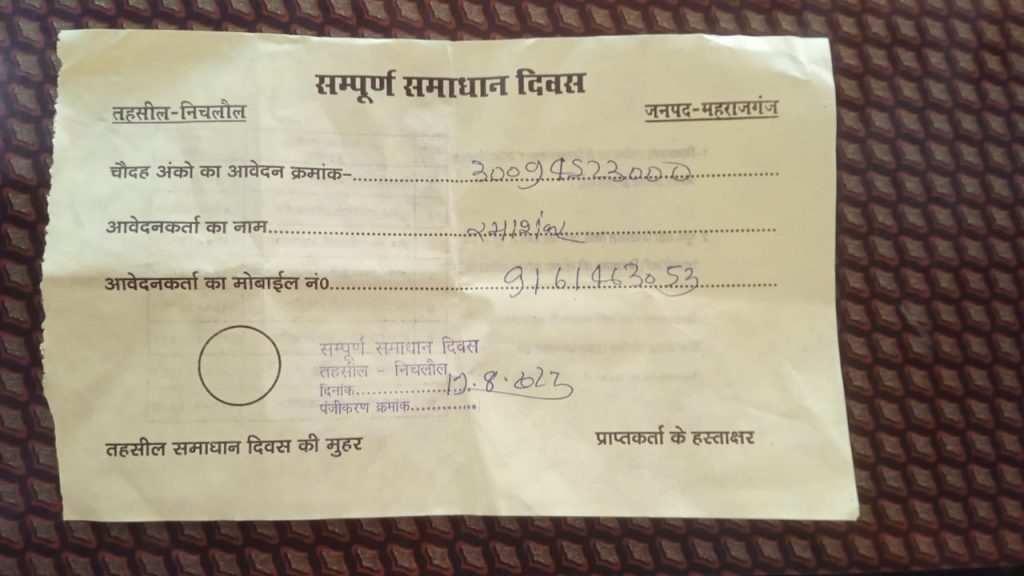 सम्पूर्ण समाधान दिवस
तहसील-निचलौल जनपद-महराजगंज
चौदह अंको का आवेदन क्रमांक-
आवेदनकर्ता का नाम
आवेदनकर्ता का मोबाईल नं०
सम्पूर्ण समाधान दिवस
तहसील - निचलौल
दिनांक
पंजीकरण क्रमांक
तहसील समाधान दिवस की मुहर प्राप्तकर्ता के हस्ताक्षर